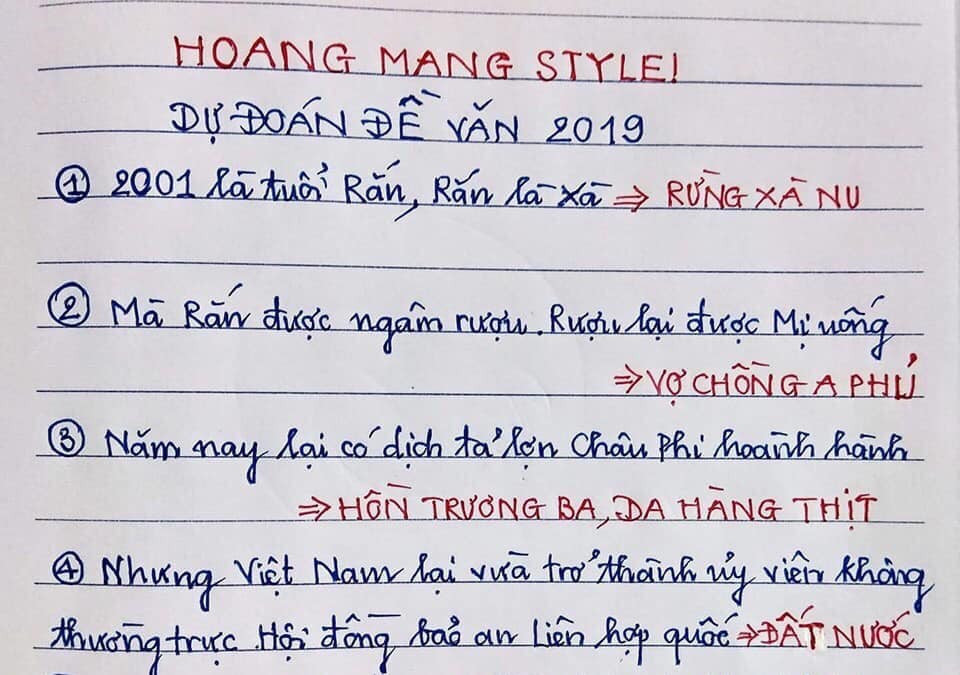 HOANG MANG STYLE!
DỰ ĐOÁN ĐỀ VĂN 2019
① 2001 là tuổi Rắn, Rắn là xà ⇒ RỪNG XÀ NU
② Mà Rắn được ngâm rượu. Rượu lại được Mị uống
⇒ VỢ CHỒNG A PHỦ
③ Năm nay lại có dịch tả lợn Châu Phi hoành hành
⇒ HỒN TRƯƠNG BA, DA HÀNG THỊT
④ Nhưng Việt Nam lại vừa trở thành ủy viên không
thường trực Hội đồng bảo an Liên hợp quốc ⇒ ĐẤT NƯỚC